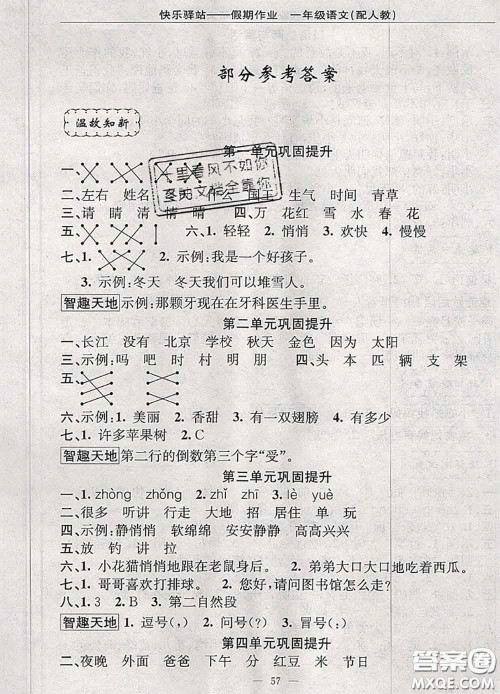 快乐驿站——假期作业 一年级语文(配人教)
部分参考答案
温故知新
第一单元巩固提升
一、
二、左右 姓名 什么 国王 生气 时间 青草
三、请 睛 清 情 晴 四、万 花红 雪 水 春 花
五、 六、1. 轻轻 2. 悄悄 3. 欢快 4. 慢慢
七、1. 2. 示例:我是一个好孩子。
3. 示例:冬天 冬天我们可以堆雪人。
智趣天地 示例:那颗牙现在在牙科医生手里。
第二单元巩固提升
一、长江 没有 北京 学校 秋天 金色 因为 太阳
三、示例:吗 吧 时 村 明 朋 四、头 本 匹 辆 支 架
五、
六、示例:1. 美丽 2. 香甜 3. 有一双翅膀 4. 有多少
七、1. 许多苹果树 2. C
智趣天地 第二行的倒数第三个字“受”。
第三单元巩固提升
一、1. zhòng zhǒng 2. zhǐ zhī 3. lè yuè
二、很多 听讲 行走 大地 招手 居住 主人 江河
四、示例:静悄悄 软绵绵 安安静静 高高兴兴
五、放 钓 讲 拉
六、1. 小花猫悄悄地跟在老鼠身后。 2. 弟弟大口大口地吃着西瓜。
七、1. 哥哥喜欢打排球。 2. 您好,请问图书馆怎么走?
八、1. 3 2. B 3. 第二自然段
智趣天地 1. 逗号(,) 2. 问号(?) 3. 冒号(:)
第四单元巩固提升
二、夜晚 外面 爸爸 下午 分 红豆 米 节日
— 57 —
答案圈
MXQE.COM